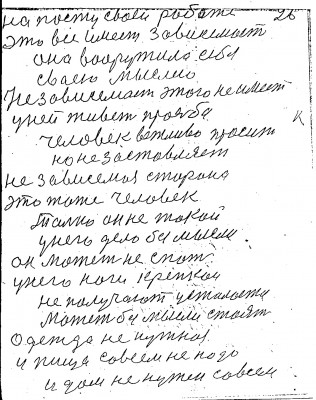 на посту своей работе 26
это всё имеет зависемост
она вооружила себя
своею мыслию
Независемаст этого не имеет
у ней живет прозба
человек вежливо просит
но не заставляет
не зависемая старана
это тоже человек
толко он не такой
у него дело бы мысли
он может не спат
у него ноги крепкои
не получают усталости
может бы мысли стоят
одежда не нужна
и пища совсем не надо
и дом не нужен совсем